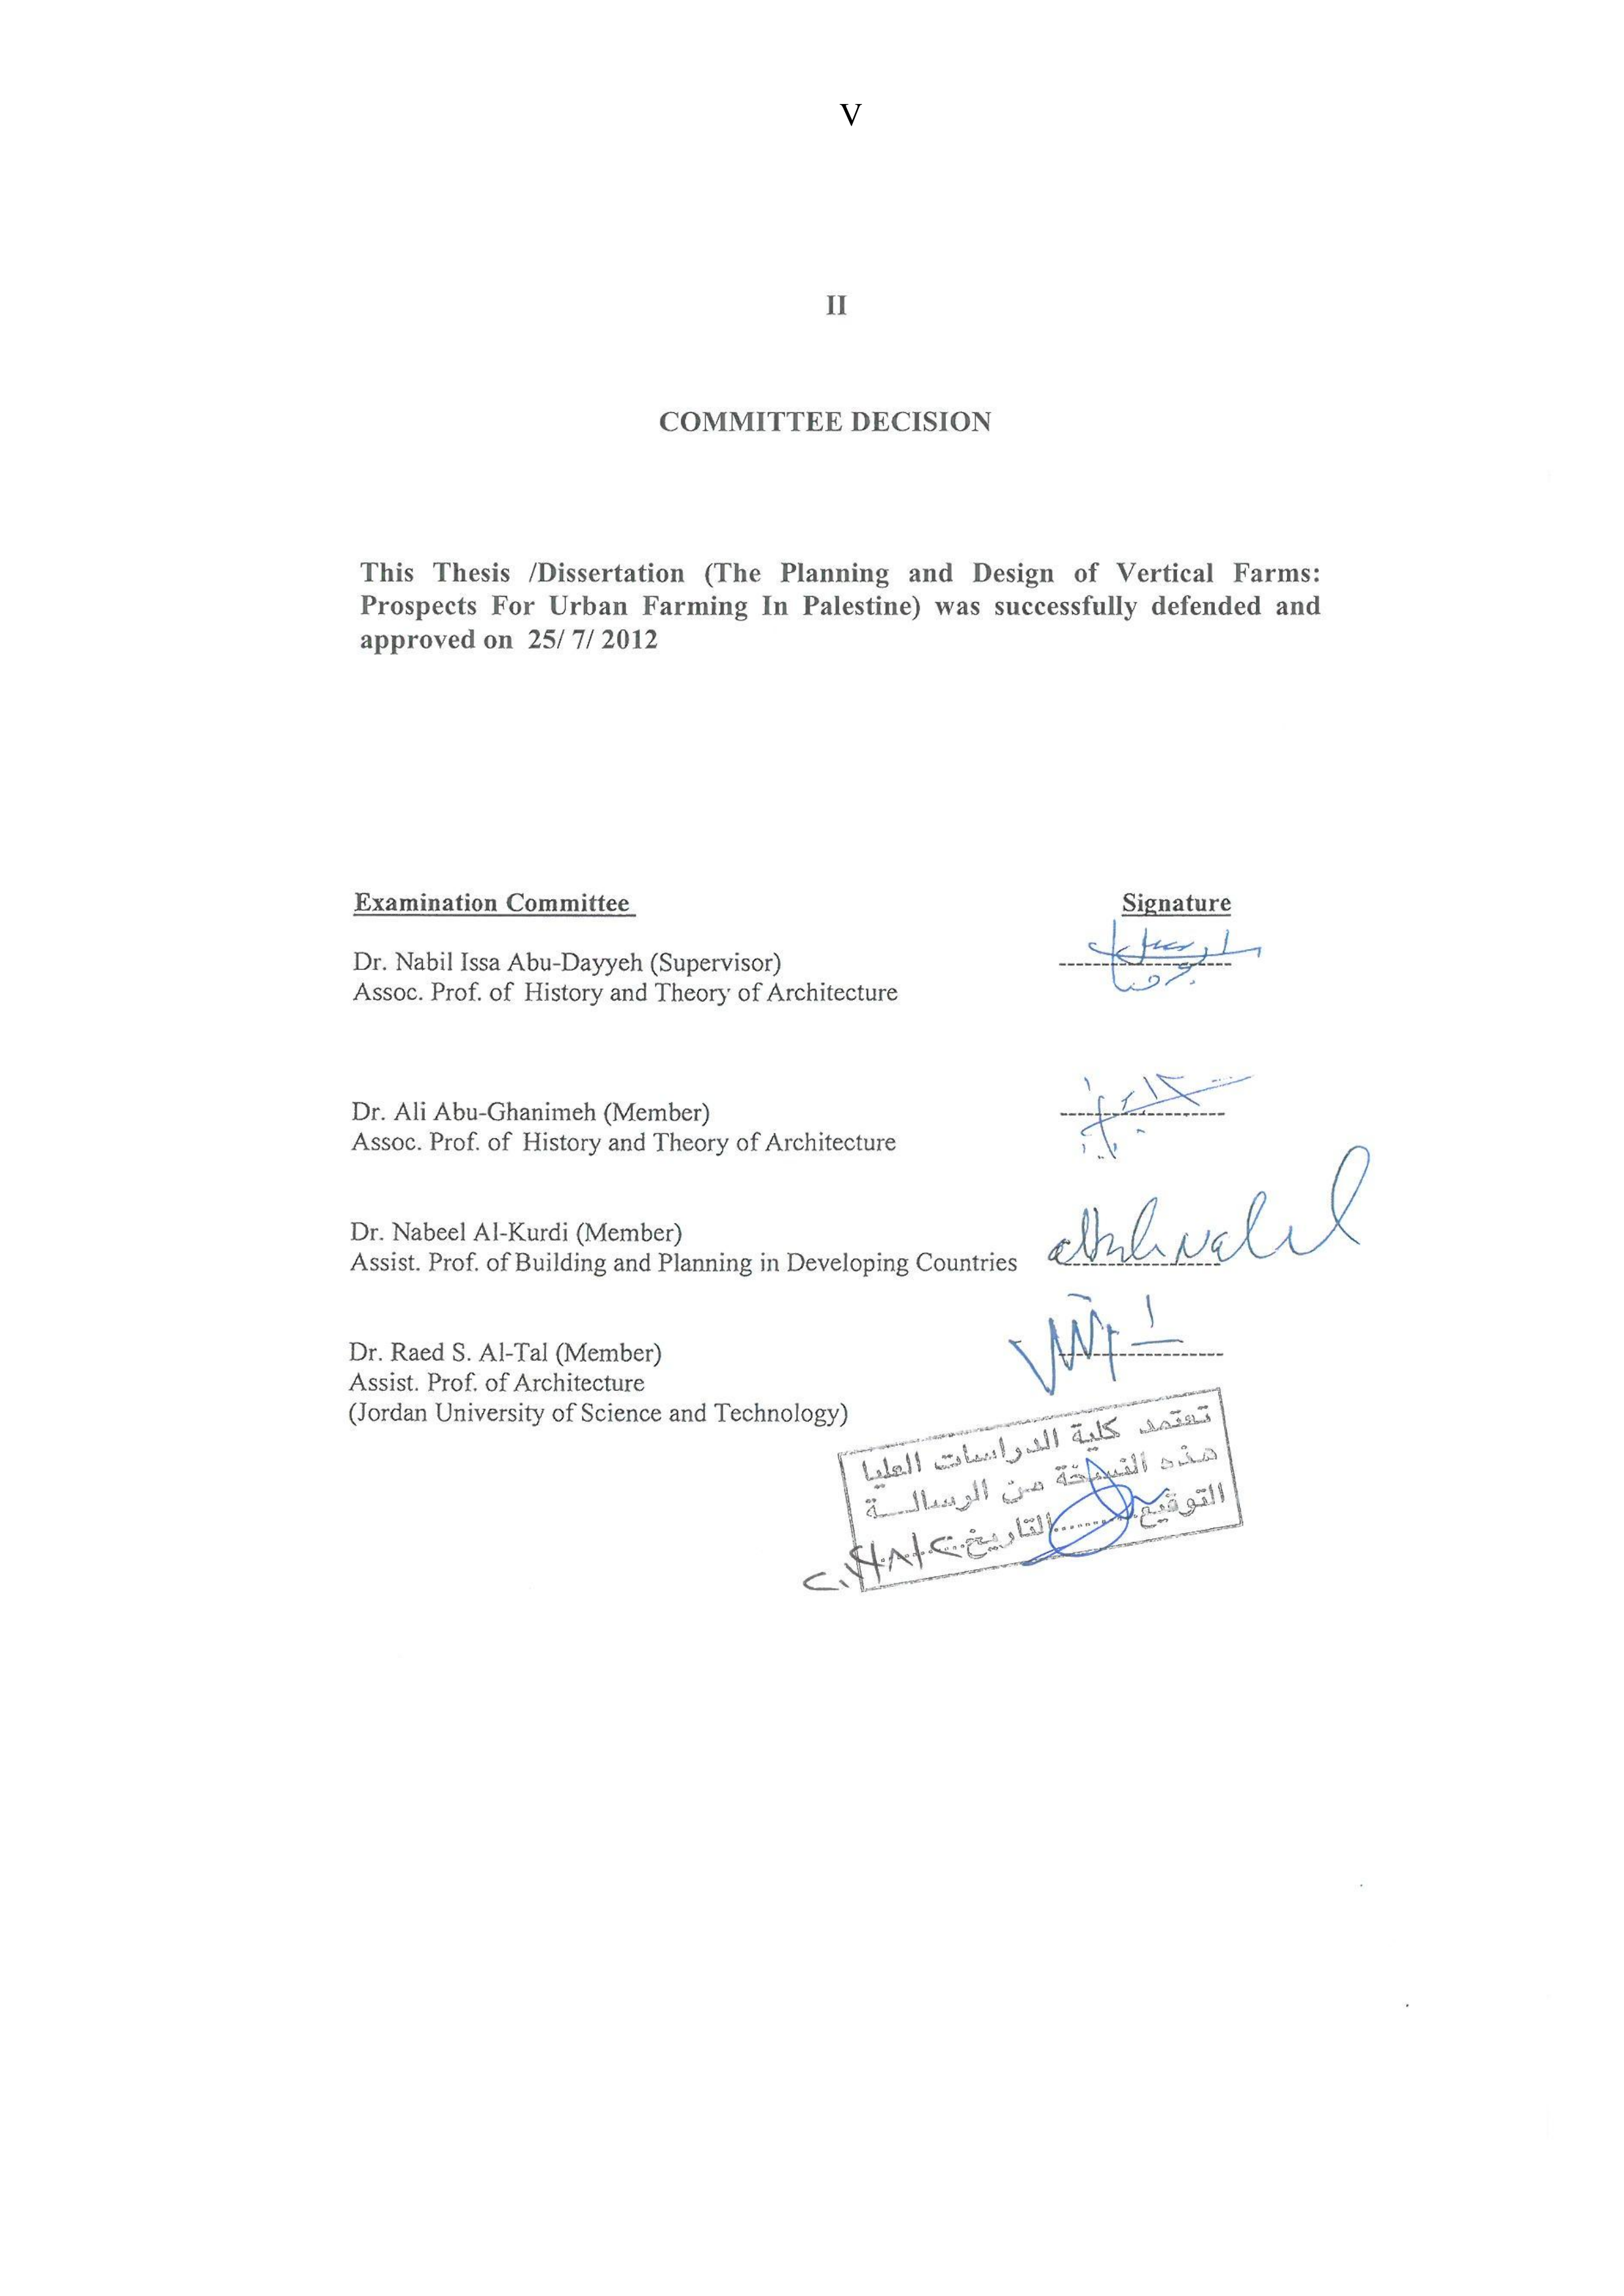 V
II
COMMITTEE DECISION
This Thesis /Dissertation (The Planning and Design of Vertical Farms:
Prospects For Urban Farming In Palestine) was successfully defended and
approved on 25/ 7/ 2012
Examination Committee
Signature
Dr. Nabil Issa Abu-Dayyeh (Supervisor)
Assoc. Prof. of History and Theory of Architecture
Dr. Ali Abu-Ghanimeh (Member)
Assoc. Prof. of History and Theory of Architecture
Dr. Nabeel Al-Kurdi (Member)
Assist. Prof. of Building and Planning in Developing Countries
Dr. Raed S. Al-Tal (Member)
Assist. Prof. of Architecture
(Jordan University of Science and Technology)
تعتمد كلية الدراسات العليا
هذه النسخة من الرسالــة
التوقيع........التاريخ........